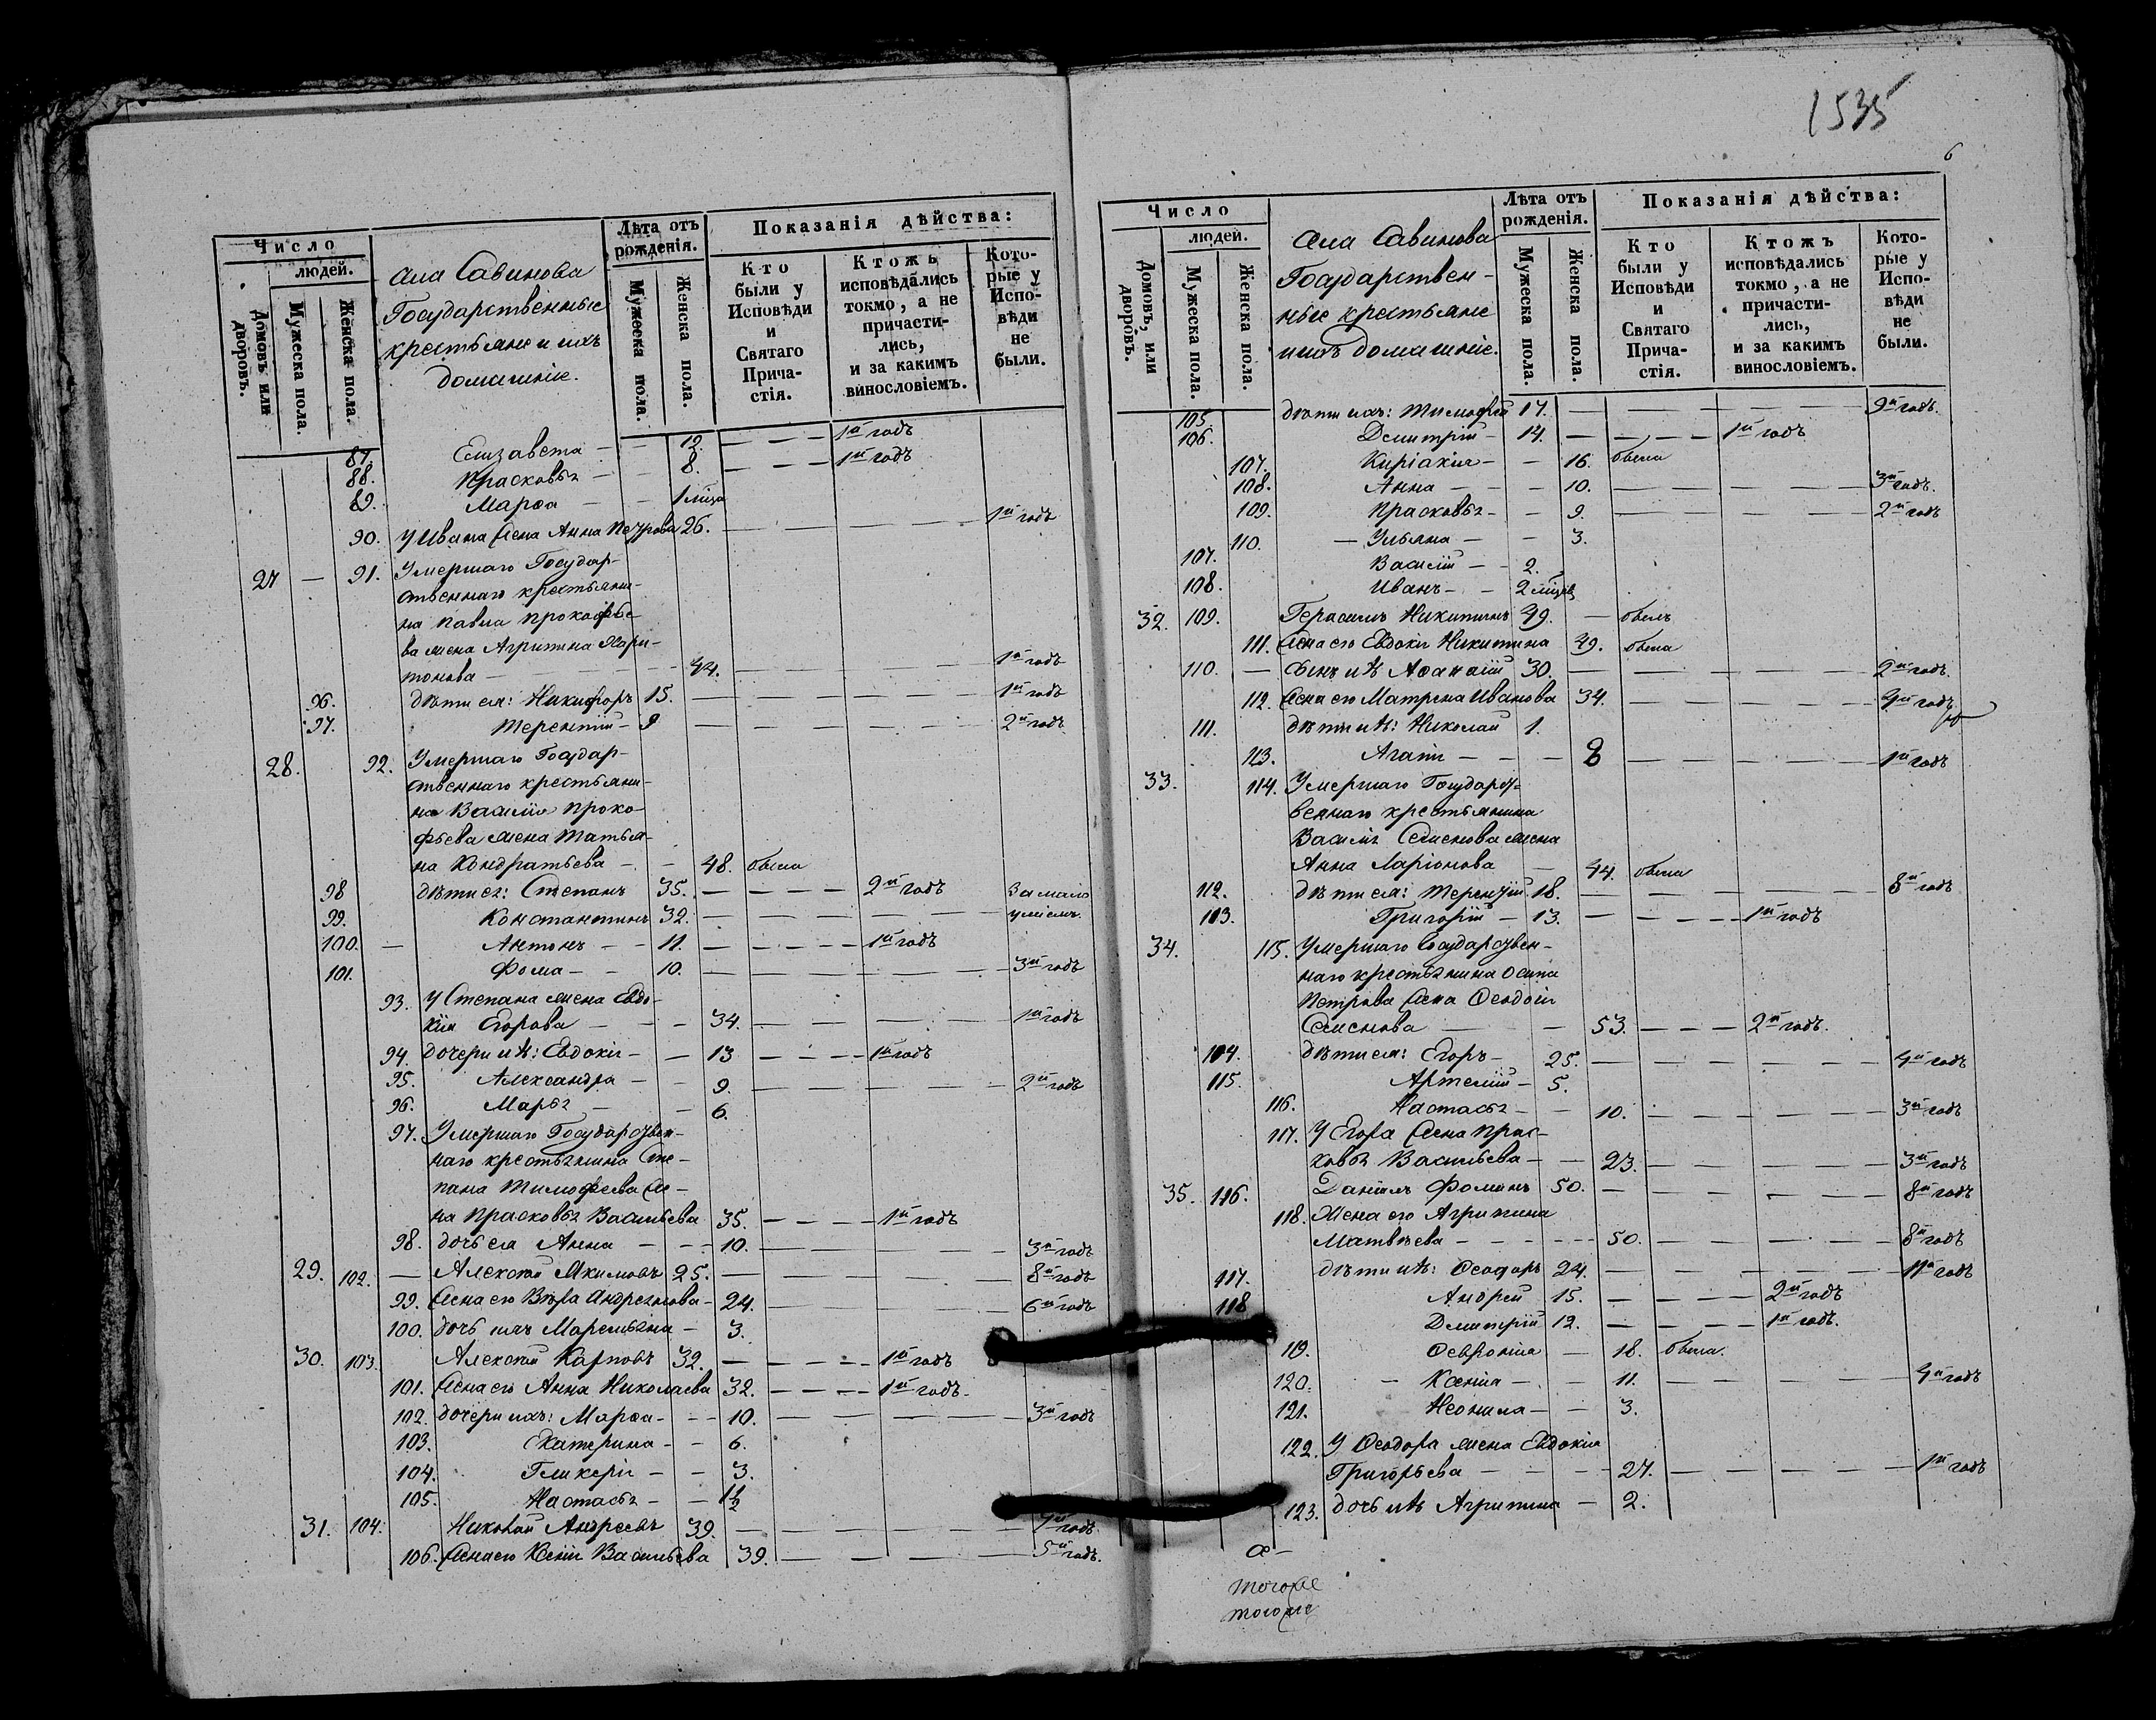 1535
6
Число
людей.
Домовъ или дворовъ.
Мужеска пола.
Женска пола.
сла Савинова
Государственные
крестьяне и ихъ
домашніе.
Лѣта отъ рожденія.
Мужеска пола.
Женска пола.
Показанія дѣйства:
Кто были у Исповѣди и Святаго Причастія.
Ктожъ исповѣдались токмо, а не причастились, и за какимъ винословіемъ.
Которые у Исповѣди не были.
87. Елизавета — — 12. — — — 1й годъ
88. Прасковья — — 8. — — — 1й годъ
89. Марѳа — — 1 мѣца
90. У Ивана жена Анна Петрова 26. — — — — 1й годъ
27 — 91. Умершаго Государ-
ственнаго крестьяни-
на Павла Прокофье-
ва жена Агрипина Хари-
тонова — — — 44. — — — 1й годъ
96. дѣти ея: Никифоръ 15. — — — — 1й годъ
97. Терентій — 9 — — — — 2й годъ
28. 92. Умершаго Государ-
ственнаго крестьяни-
на Василія Проко-
фьева жена Татья-
на Кондратьева — — 48. была
98 дѣти ея: Степанъ 35. — — — — 2й годъ
99. Константинъ 32. — — — — За мало
умiемъ.
100. — Антонъ — — 11. — — — — 1й годъ
101. Фома — — 10. — — — — 3й годъ
93. У Степана жена Евдо-
кія Егорова — — — 34. — — — — 1й годъ
94. дочери ихъ: Евдокія — — 13 — — — 1й годъ
95. Александра — — 9. — — — — 2й годъ
96. Марья — — 6.
97. Умершаго Государствен-
наго крестьянина Сте-
пана Тимофеева же-
на Прасковья Васильева 35. — — — 1й годъ
98. дочь ея Анна — — — 10. — — — — 3й годъ
29. 102. — Алексѣй Якимовъ 25. — — — — 8й годъ
99. Жена его Вѣра Андреянова — 24. — — — 6й годъ
100. дочь ихъ Маремьяна — 3.
30. 103. Алексѣй Карповъ 32. — — — — 1й годъ
101. Жена его Анна Николаева 32. — — — 1й годъ
102. дочери ихъ: Марѳа — — — 10. — — — — 3й годъ
103. Екатерина — — 6.
104. Гликерія — — 3.
105. Настасья — — 1½
31. 104. Николай Андреевъ 39. — — — — 7й годъ
106. Жена его Ксенія Васильева 39. — — — — 5й годъ.
Число
людей.
Домовъ, или дворовъ.
Мужеска пола.
Женска пола.
сла Савинова
Государствен-
ные крестьяне
и ихъ домашніе.
Лѣта отъ рожденія.
Мужеска пола.
Женска пола.
Показанія дѣйства:
Кто были у Исповѣди и Святаго Причастія.
Ктожъ исповѣдались токмо, а не причастились, и за какимъ винословіемъ.
Которые у Исповѣди не были.
105 дѣти ихъ: Тимофей 17. — — — — 9й годъ.
106. Димитрій — 14. — — — — 1й годъ
107. Киріакія — — 16. была
108. Анна — — — 10. — — — — 3й годъ.
109. Прасковья — — 9. — — — — 2й годъ
110. — Ульяна — — 3.
107. Василій — — 2.
108. Иванъ — — 2 мѣцев
32. 109. Герасимъ Никитинъ 49. — былъ
111. Жена его Евдокія Никитина 49. была
110. — Сынъ ихъ Афанасій 30. — — — — 2й годъ.
112. Жена его Матрена Иванова 34. — — — — 4й годъ
111. дѣти ихъ: Николай 1.
113. Агапія — — — 8 — — — — 1й годъ
33. 114. Умершаго Государст-
веннаго крестьянина
Василія Семенова жена
Анна Ларіонова — 44. была
112. дѣти ея: Терентій 18. — — — — 8й годъ
113. Григорій — 13. — — — — 1й годъ
34. 115. Умершаго Государствен-
наго крестьянина Осипа
Петрова жена Ѳеодосія
Семенова — — 53. — — — 2й годъ.
104. дѣти ея: Егоръ — 25. — — — — 4й годъ
115. Артемій — 5.
116. Настасья — — 10. — — — — 3й годъ
117. У Егора жена Прас-
ковья Васильева — — 23. — — — — 3й годъ
35. 116. Даніилъ Фоминъ 50. — — — — 8й годъ
118. Жена его Агрипина
Матвѣева — — — — — 50. — — — — 8й годъ
117. дѣти ихъ: Ѳеодоръ 24. — — — — 11й годъ
118 Андрей 15. — — — — 2й годъ
Димитрій 12. — — — — 1й годъ.
119. Ѳевронія — 18. была.
120. — Ксенія — — 11. — — — — 4й годъ
121. Неонила — — 3.
122. У Ѳеодора жена Евдокія
Григорьева — — — — 27. — — — — 1й годъ
123. дочь ихъ Агрипина — 2.
тогоже
тогоже